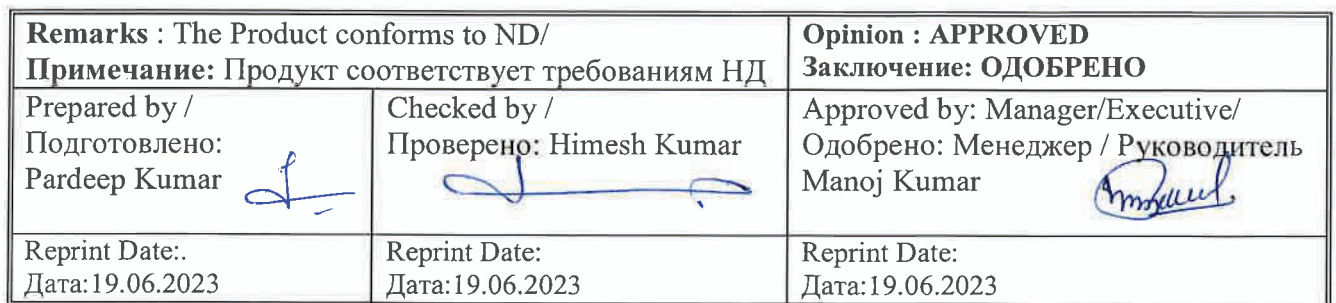 Remarks : The Product conforms to ND/
Примечание: Продукт соответствует требованиям НД
Opinion : APPROVED
Заключение: ОДОБРЕНО
Prepared by /
Подготовлено:
Pardeep Kumar
Checked by /
Проверено: Himesh Kumar
Approved by: Manager/Executive/
Одобрено: Менеджер / Руководитель
Manoj Kumar
Reprint Date:.
Дата:19.06.2023
Reprint Date:
Дата:19.06.2023
Reprint Date:
Дата:19.06.2023